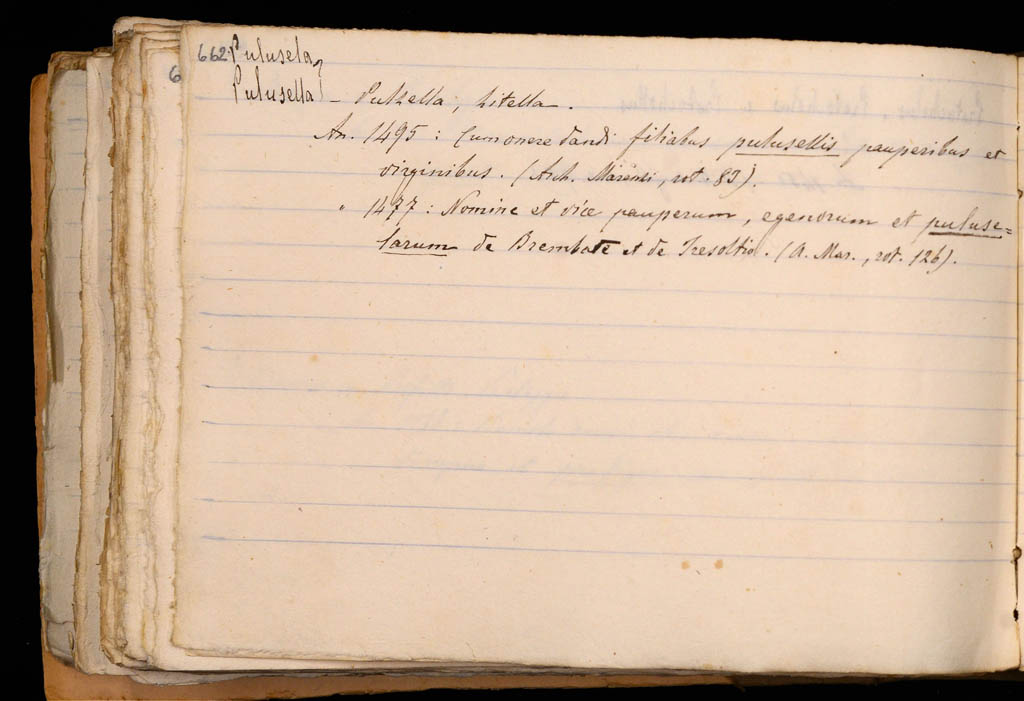 662. Pulusela,
6
Pulusella - Pulzella, zitella.
An. 1495: Cum onere dandi filiabus pulusellis pauperibus et
virginibus. (Arch. Marenzi, rot. 83).
" 1477: Nomine et vice pauperum, egenorum et puluse=
larum de Brembate et de Tresoltio. (A. Mar., rot. 126).